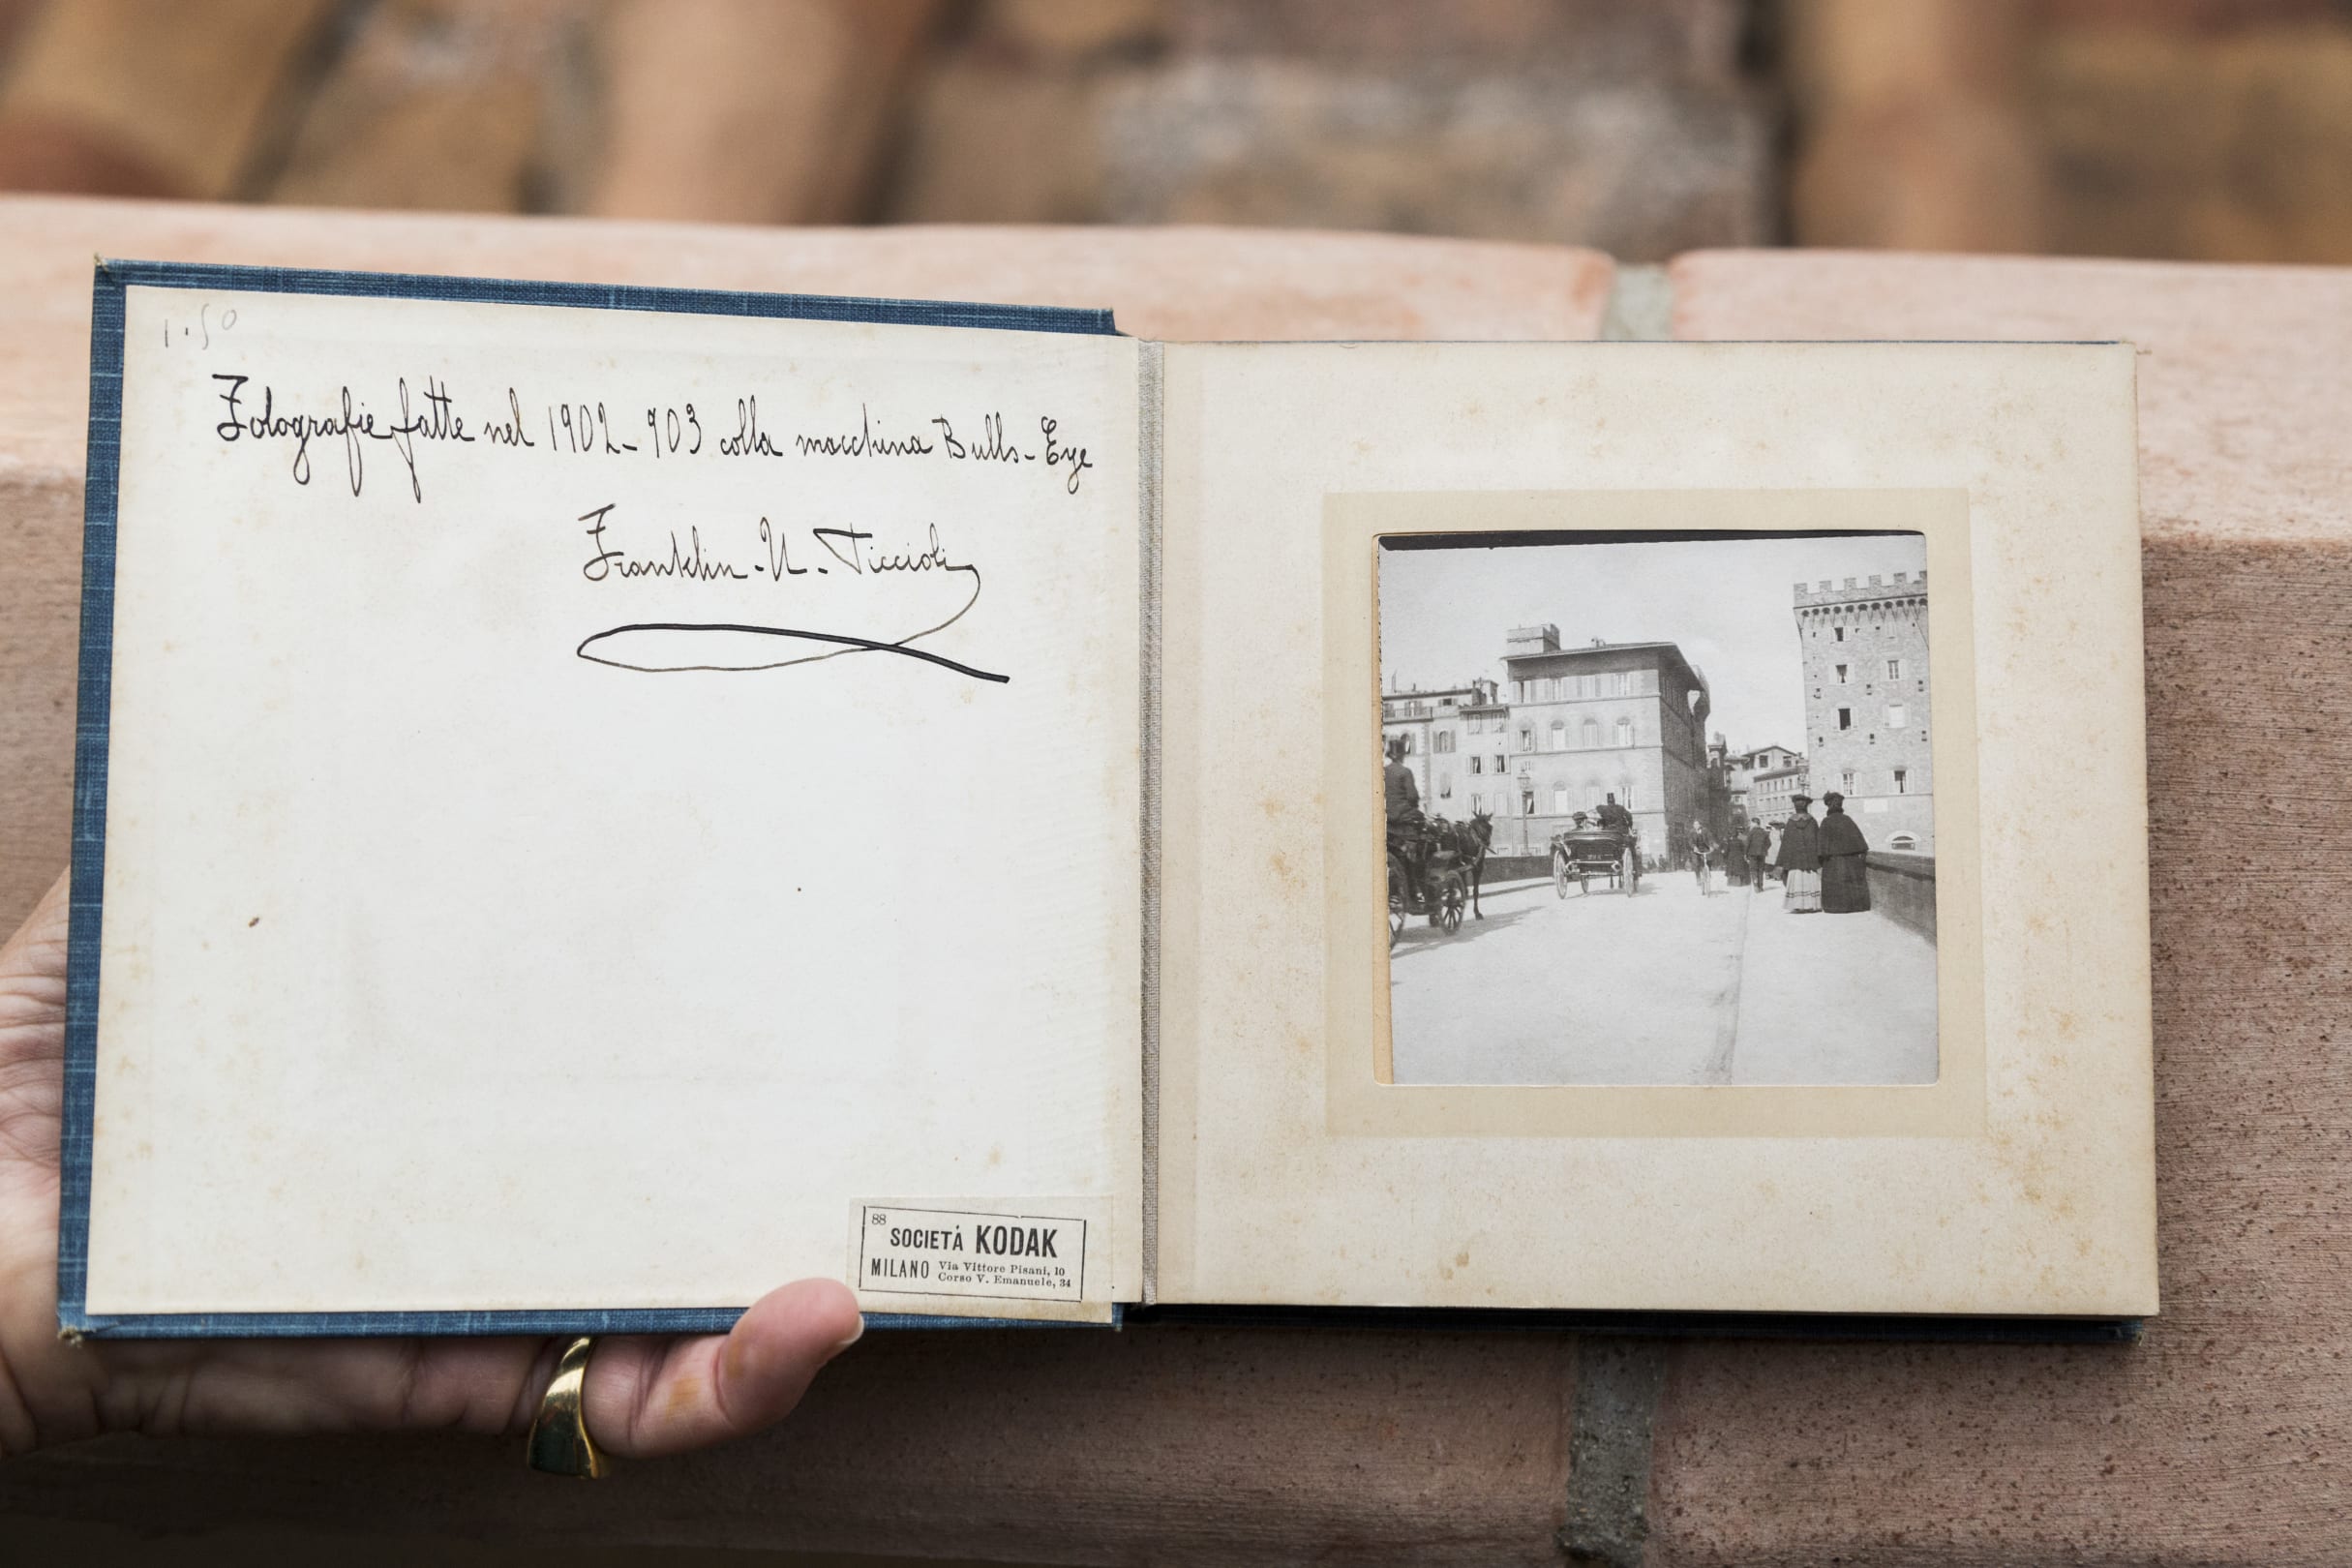 1.50
Fotografie fatte nel 1902-903 colla macchina Bulls-Eye
Franklin-U-Ticcioli
88
SOCIETÀ KODAK
MILANO Via Vittore Pisani, 10
Corso V. Emanuele, 34